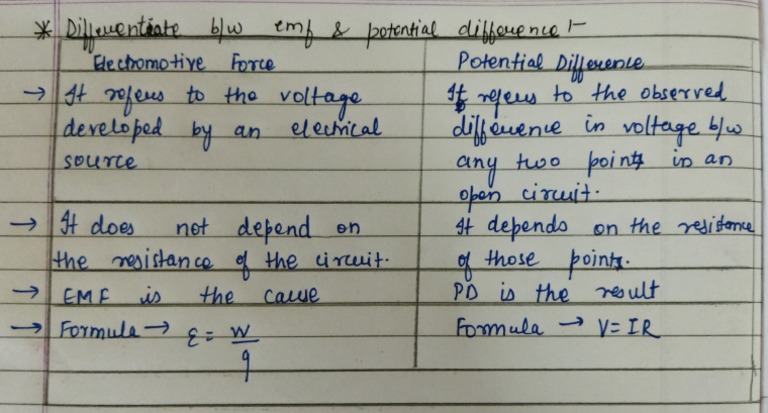 * Differentiate b/w emf & potential difference :-
Electromotive Force
Potential Difference
→ It refers to the voltage
developed by an electrical
source
It refers to the observed
difference in voltage b/w
any two points in an
open circuit.
→ It does not depend on
the resistance of the circuit.
It depends on the resistance
of those points.
→ EMF is the cause
PD is the result
→ Formula → ε = W/q
Formula → V = IR